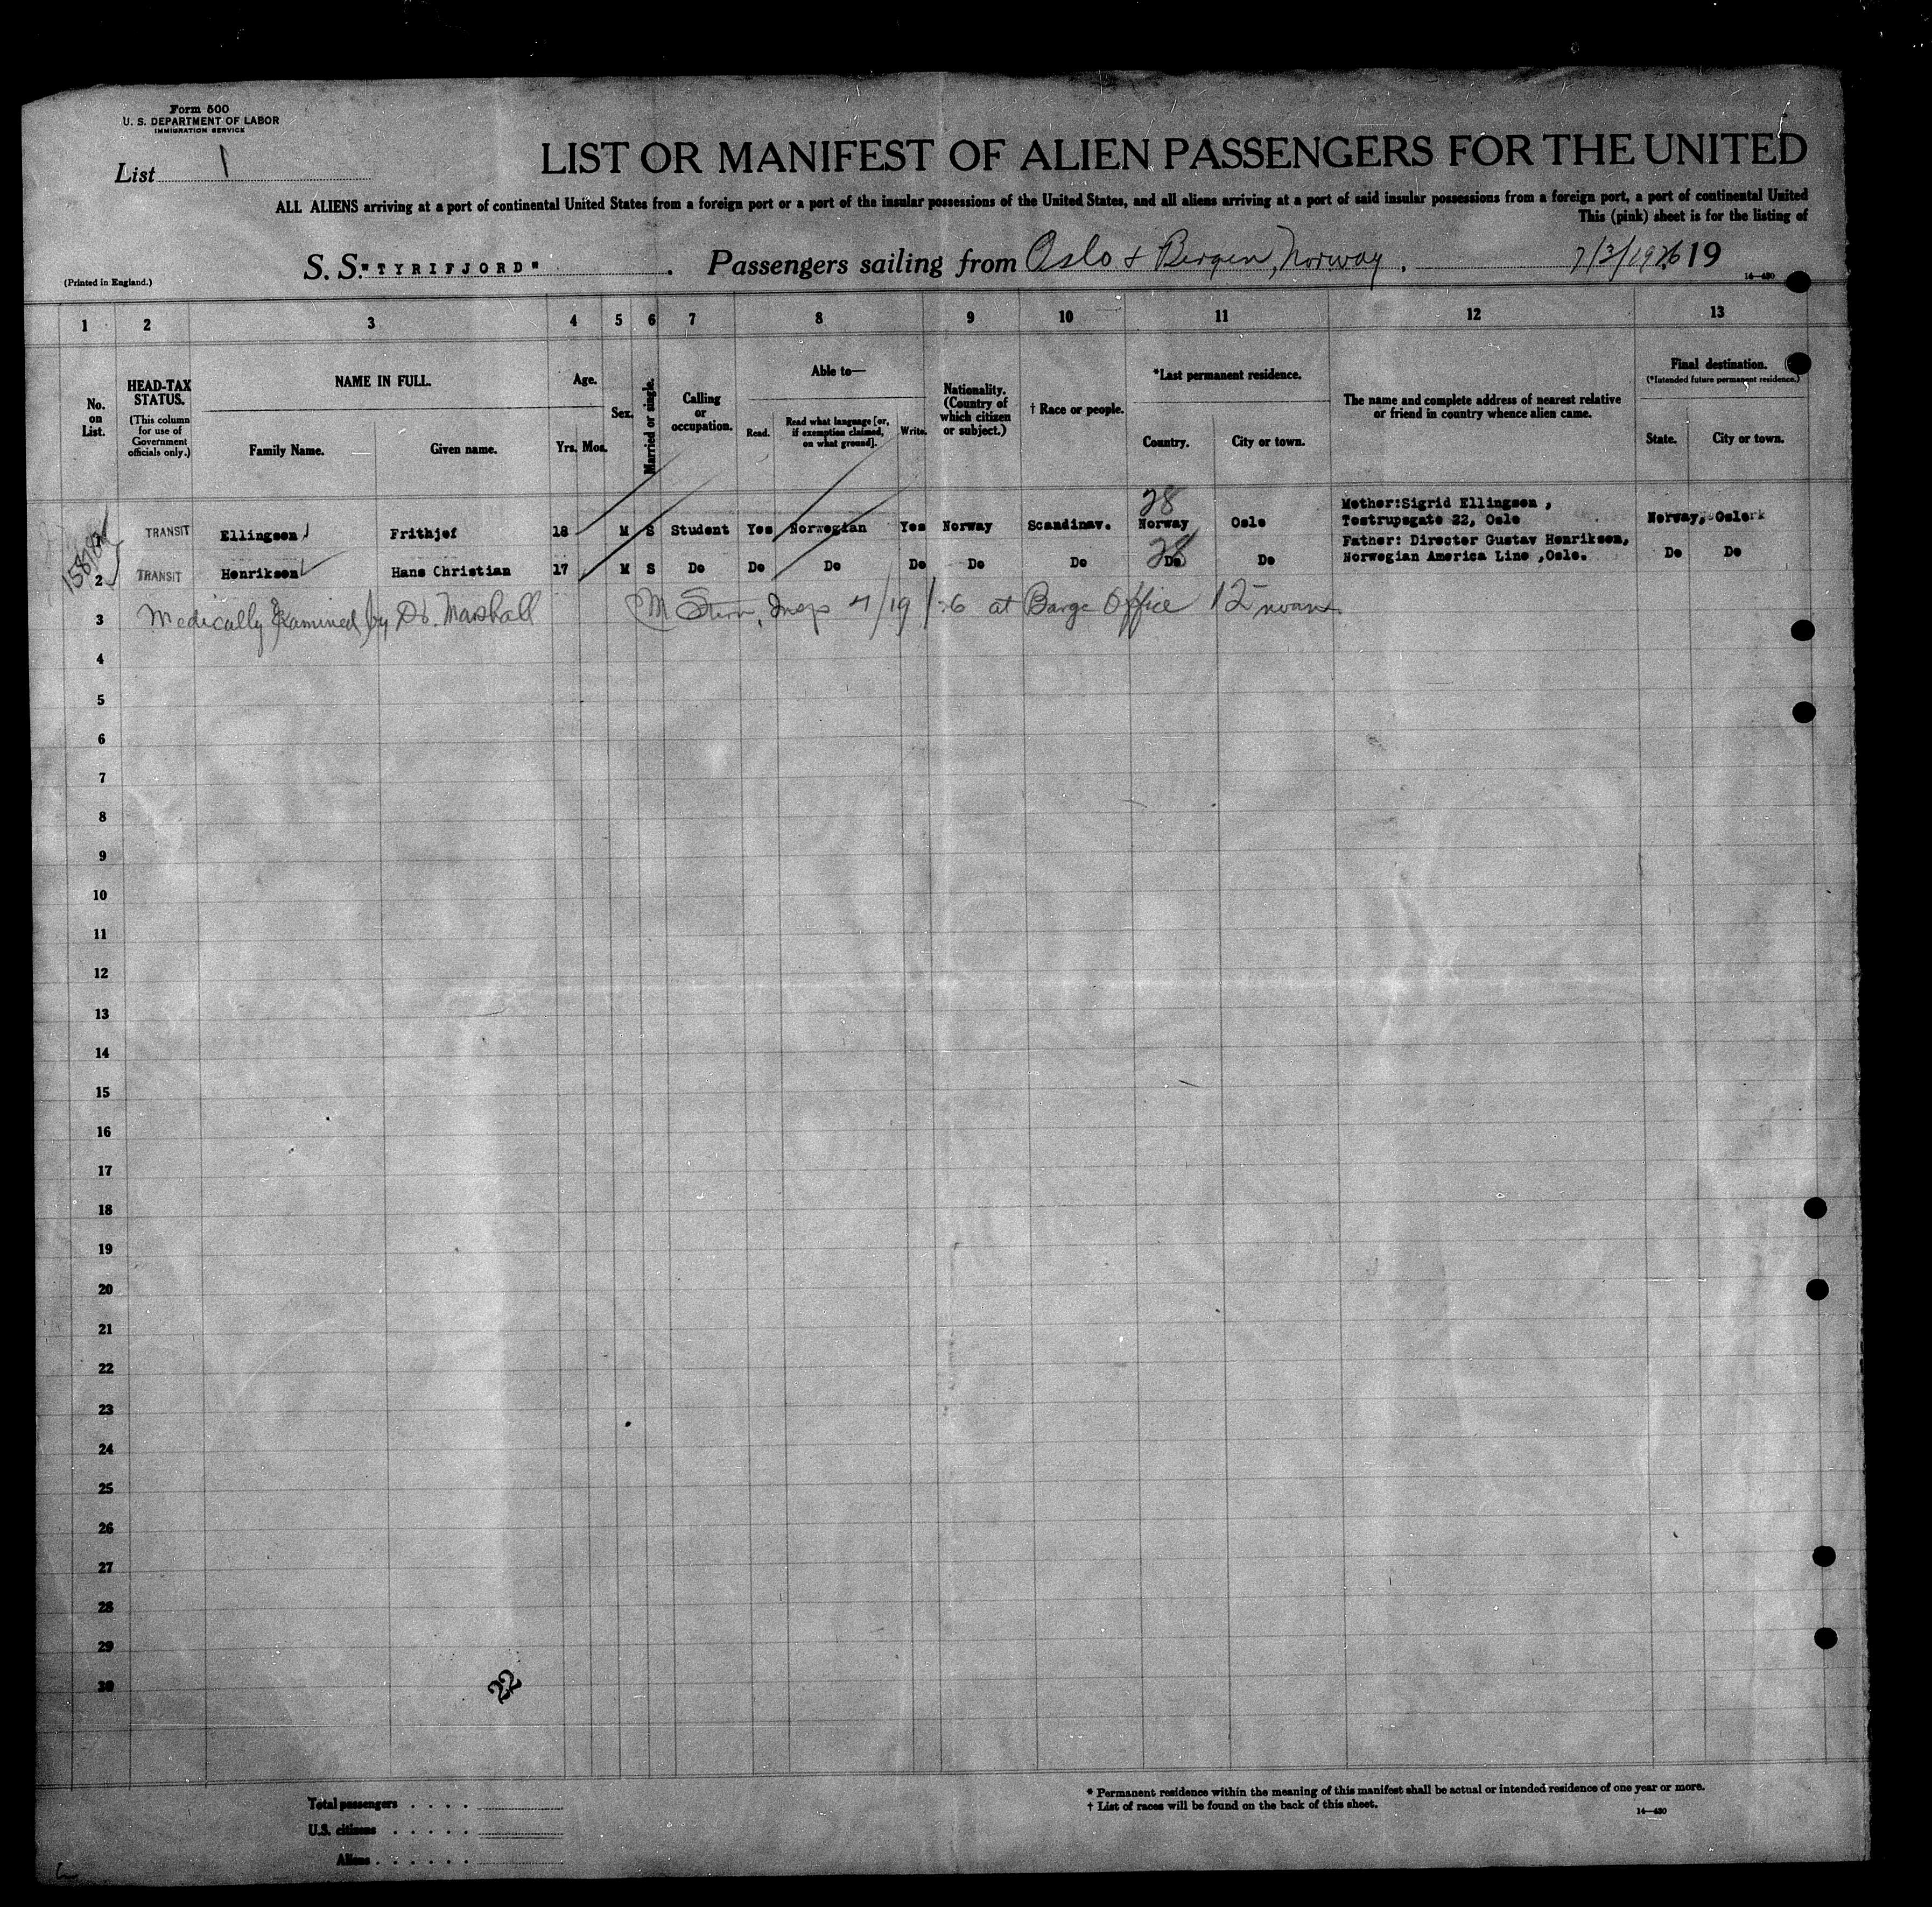 Form 500
U. S. DEPARTMENT OF LABOR
IMMIGRATION SERVICE
List 1
LIST OR MANIFEST OF ALIEN PASSENGERS FOR THE UNITED
ALL ALIENS arriving at a port of continental United States from a foreign port or a port of the insular possessions of the United States, and all aliens arriving at a port of said insular possessions from a foreign port, a port of continental United
This (pink) sheet is for the listing of
S. S. "TYRIFJORD" . Passengers sailing from Oslo & Bergen, Norway. 7/3/1926 19
(Printed in England.)
14—430
1 2 3 4 5 6 7 8 9 10 11 12 13
No. on List.
HEAD-TAX STATUS.
(This column for use of Government officials only.)
NAME IN FULL.
Family Name. Given name.
Age.
Yrs. Mos.
Sex.
Married or single.
Calling or occupation.
Able to—
Read. Read what language [or, if exemption claimed, on what ground]. Write.
Nationality. (Country of which citizen or subject.)
† Race or people.
*Last permanent residence.
Country. City or town.
The name and complete address of nearest relative or friend in country whence alien came.
Final destination.
(*Intended future permanent residence.)
State. City or town.
28
TRANSIT Ellingsen Frithjof 18 M S Student Yes Norwegian Yes Norway Scandinav. Norway Oslo Mother:Sigrid Ellingsen , Testrupsgate 22, Oslo Norway, Oslo
28
2 TRANSIT Henriksen Hans Christian 17 M S Do Do Do Do Do Do Do Do Father: Director Gustav Henriksen, Norwegian America Line ,Oslo. Do Do
3 Medically Examined by Dr. Marshall M Stern, Insp 7/19/26 at Barge Office 12 noon
4
5
6
7
8
9
10
11
12
13
14
15
16
17
18
19
20
21
22
23
24
25
26
27
28
29
30
22
Total passengers . . . .
U.S. citizens . . . . .
Aliens . . . . . .
* Permanent residence within the meaning of this manifest shall be actual or intended residence of one year or more.
† List of races will be found on the back of this sheet.
14—430